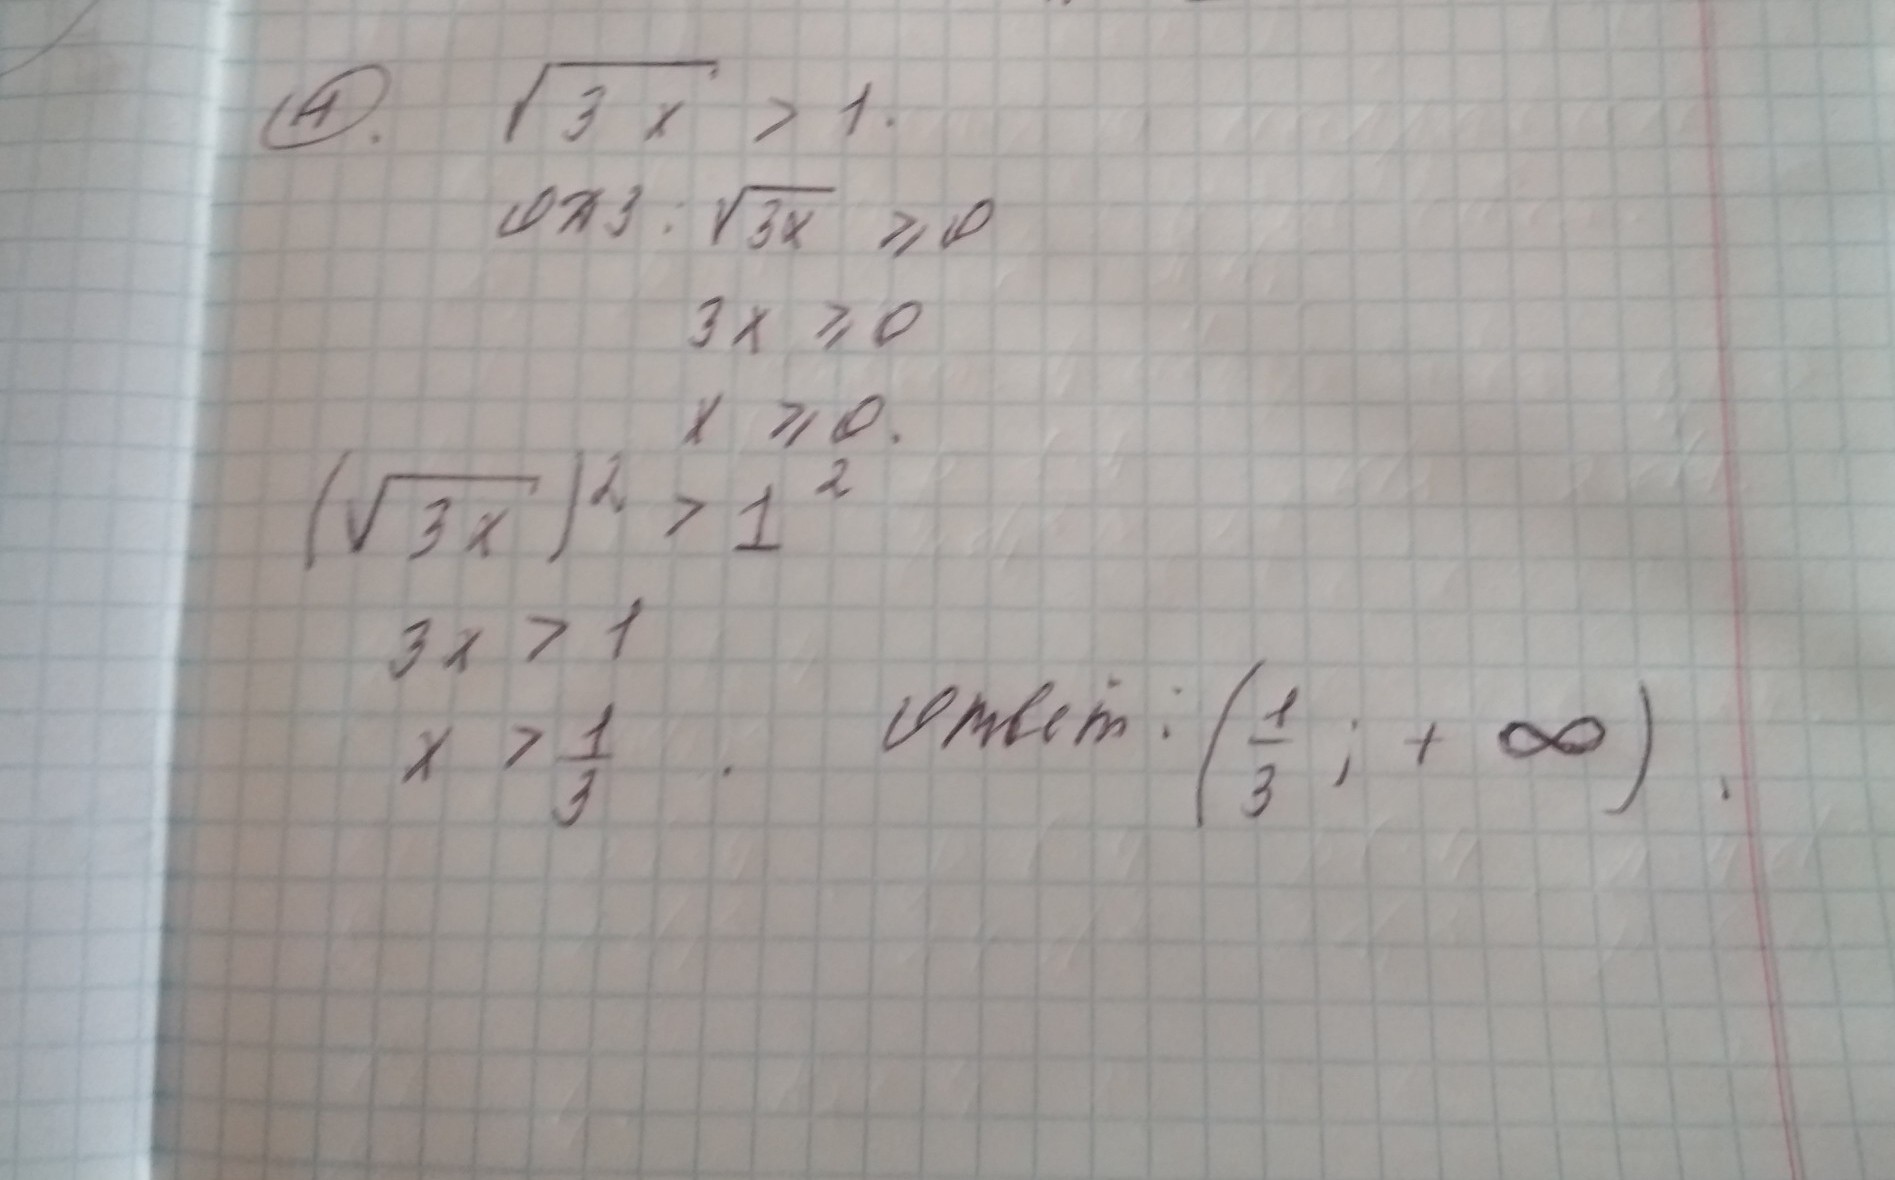 4. √3x > 1.
ОДЗ: √3x ⩾ 0
3x ⩾ 0
x ⩾ 0.
(√3x)² > 1²
3x > 1
x > 1/3 . Ответ: (1/3; + ∞).